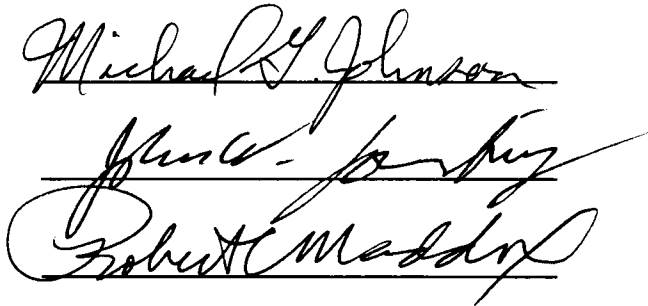 Michael G. Johnson
John
Robert C Maddox